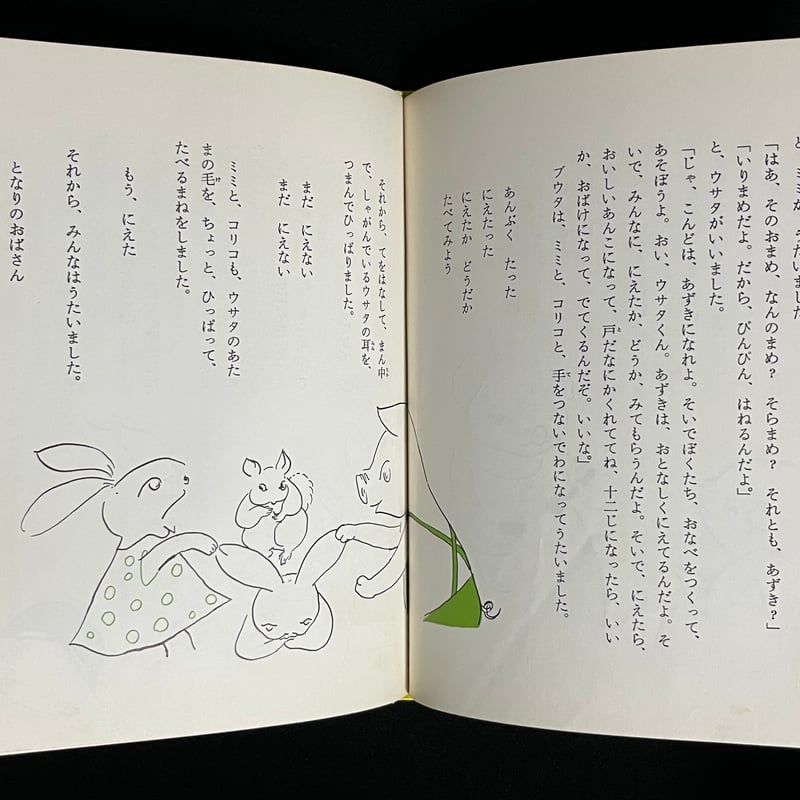 「はあ、そのおまめ、なんのまめ？　そらまめ？　それとも、あずき？」
「いりまめだよ。だから、ぴんぴん、はねるんだよ。」
と、ウサタがいいました。
「じゃ、こんどは、あずきになれよ。そいでぼくたち、おなべをつくって、
あそぼうよ。おい、ウサタくん。あずきは、おとなしくにえてるんだよ。そ
いで、みんなに、にえたか、どうか、みてもらうんだよ。そいで、にえたら、
おいしいあんこになって、戸だなにかくれててね、十二じになったら、いい
か、おばけになって、でてくるんだぞ。いいな。」
ブウタは、ミミと、コリコと、手をつないでわになってうたいました。
あんぶく　たった
にえたった
にえたか　どうだか
たべてみよう
それから、てをはなして、まん中
で、しゃがんでいるウサタの耳を、
つまんでひっぱりました。
まだ　にえない
まだ　にえない
ミミと、コリコも、ウサタのあた
まの毛を、ちょっと、ひっぱって、
たべるまねをしました。
もう、にえた
それから、みんなはうたいました。
となりのおばさん